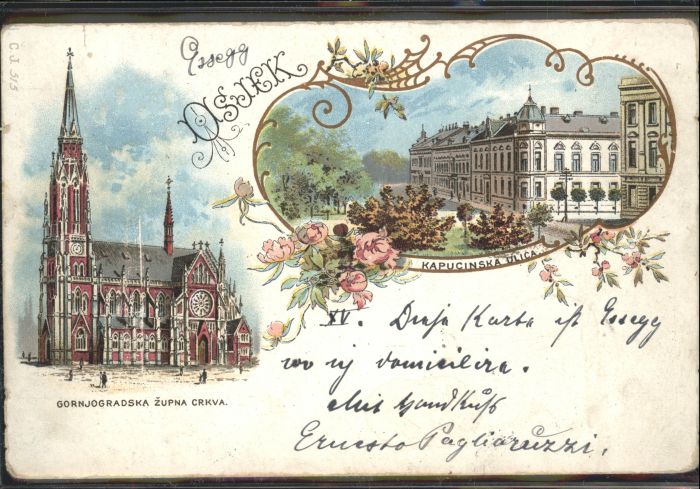 C.J. 515
Essegg
OSIJEK
KAPUCINSKA ULICA.
XV. Diese Karte ist Essegg
wo ij domicilire.
Mit Handkuß
Ernesto Pagliaruzzi.
GORNJOGRADSKA ŽUPNA CRKVA.